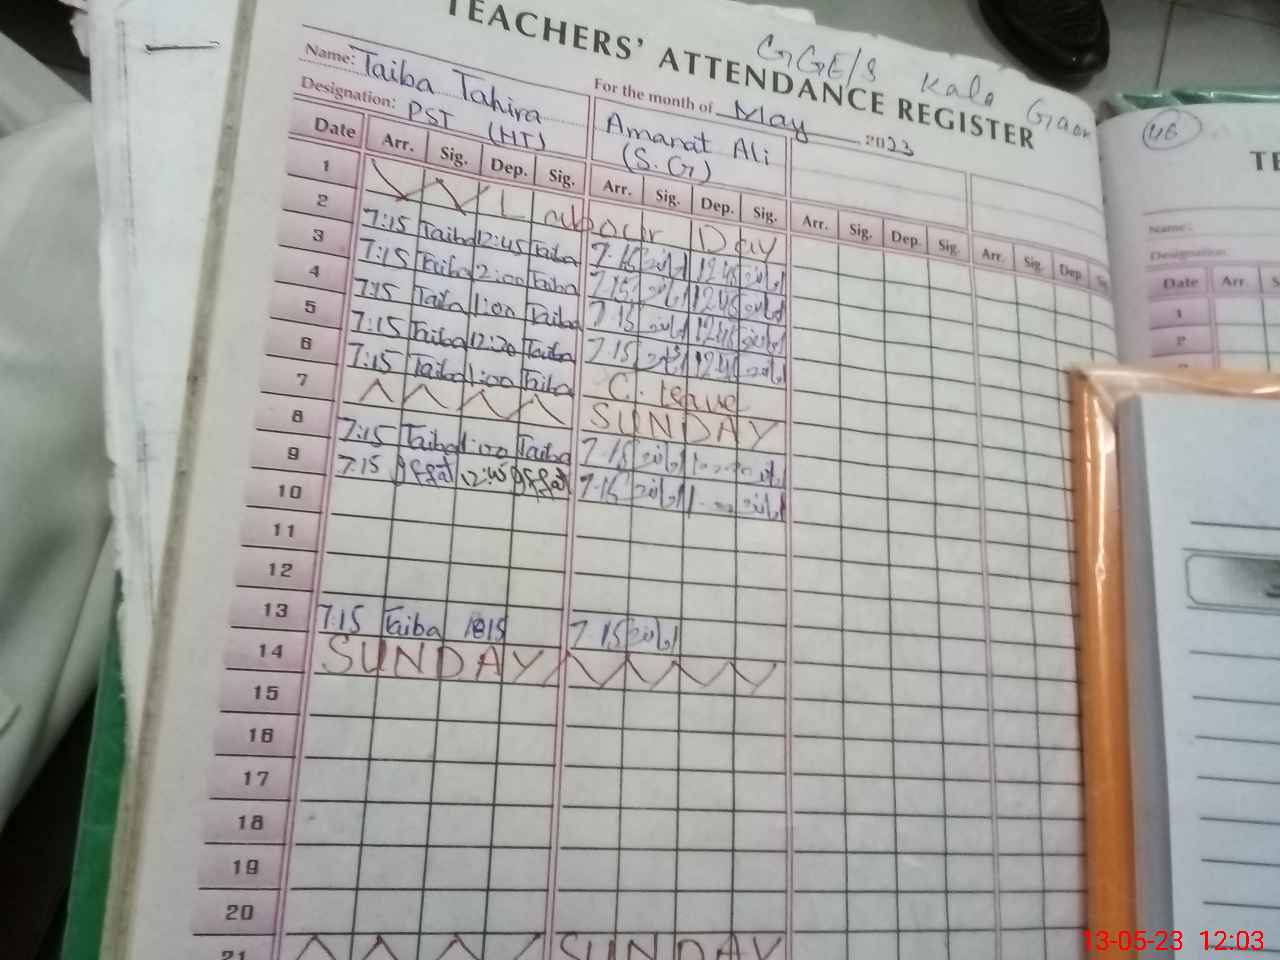 TEACHERS' ATTENDANCE REGISTER
GGE/S Kala Graon
Name: Taiba Tahira
For the month of May 2023
Designation: PST (HT)
Amanat Ali
(S.G)
Date Arr. Sig. Dep. Sig. Arr. Sig. Dep. Sig. Arr. Sig. Dep. Sig. Arr. Sig. Dep. Sig.
1 Labour Day
2 7:15 Taiba 12:45 Taiba 7.15 12:45
3 7:15 Taiba 2:00 Taiba 7.15 12:45
4 7:15 Taiba 1:00 Taiba 7.15 12:45
5 7:15 Taiba 12:30 Taiba 7.15 12:45
6 7:15 Taiba 1:00 Taiba C. leave
7 SUNDAY
8 7:15 Taiba 1:00 Taiba 7.15
9 7:15 Iffat 12:45 Iffat 7.15
10
11
12
13 7:15 Taiba 7.15
14 SUNDAY
15
16
17
18
19
20
21 SUNDAY
46
TE
Name:
Designation:
Date Arr. S
1
2
13-05-23 12:03